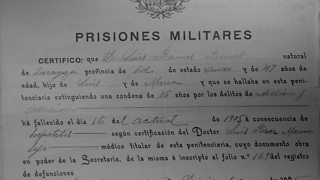 PRISIONES MILITARES
CERTIFICO: que D. Luis Ramos natural
de Zaragoza provincia de id. de estado viudo y de 47 años de
edad, hijo de Luis y de María y que se hallaba en esta peni-
tenciaria extinguiendo una condena de 15 años por los delitos de rebelión y
ha fallecido el 16 del actual 1905 a consecuencia
de hepatitis según certificación del Doctor Luis Pérez
médico titular de esta penitenciaria, cuyo documento obra
en poder de la Secretaría, de la misma é inscripto al folio n.° 157 del registro
de defunciones